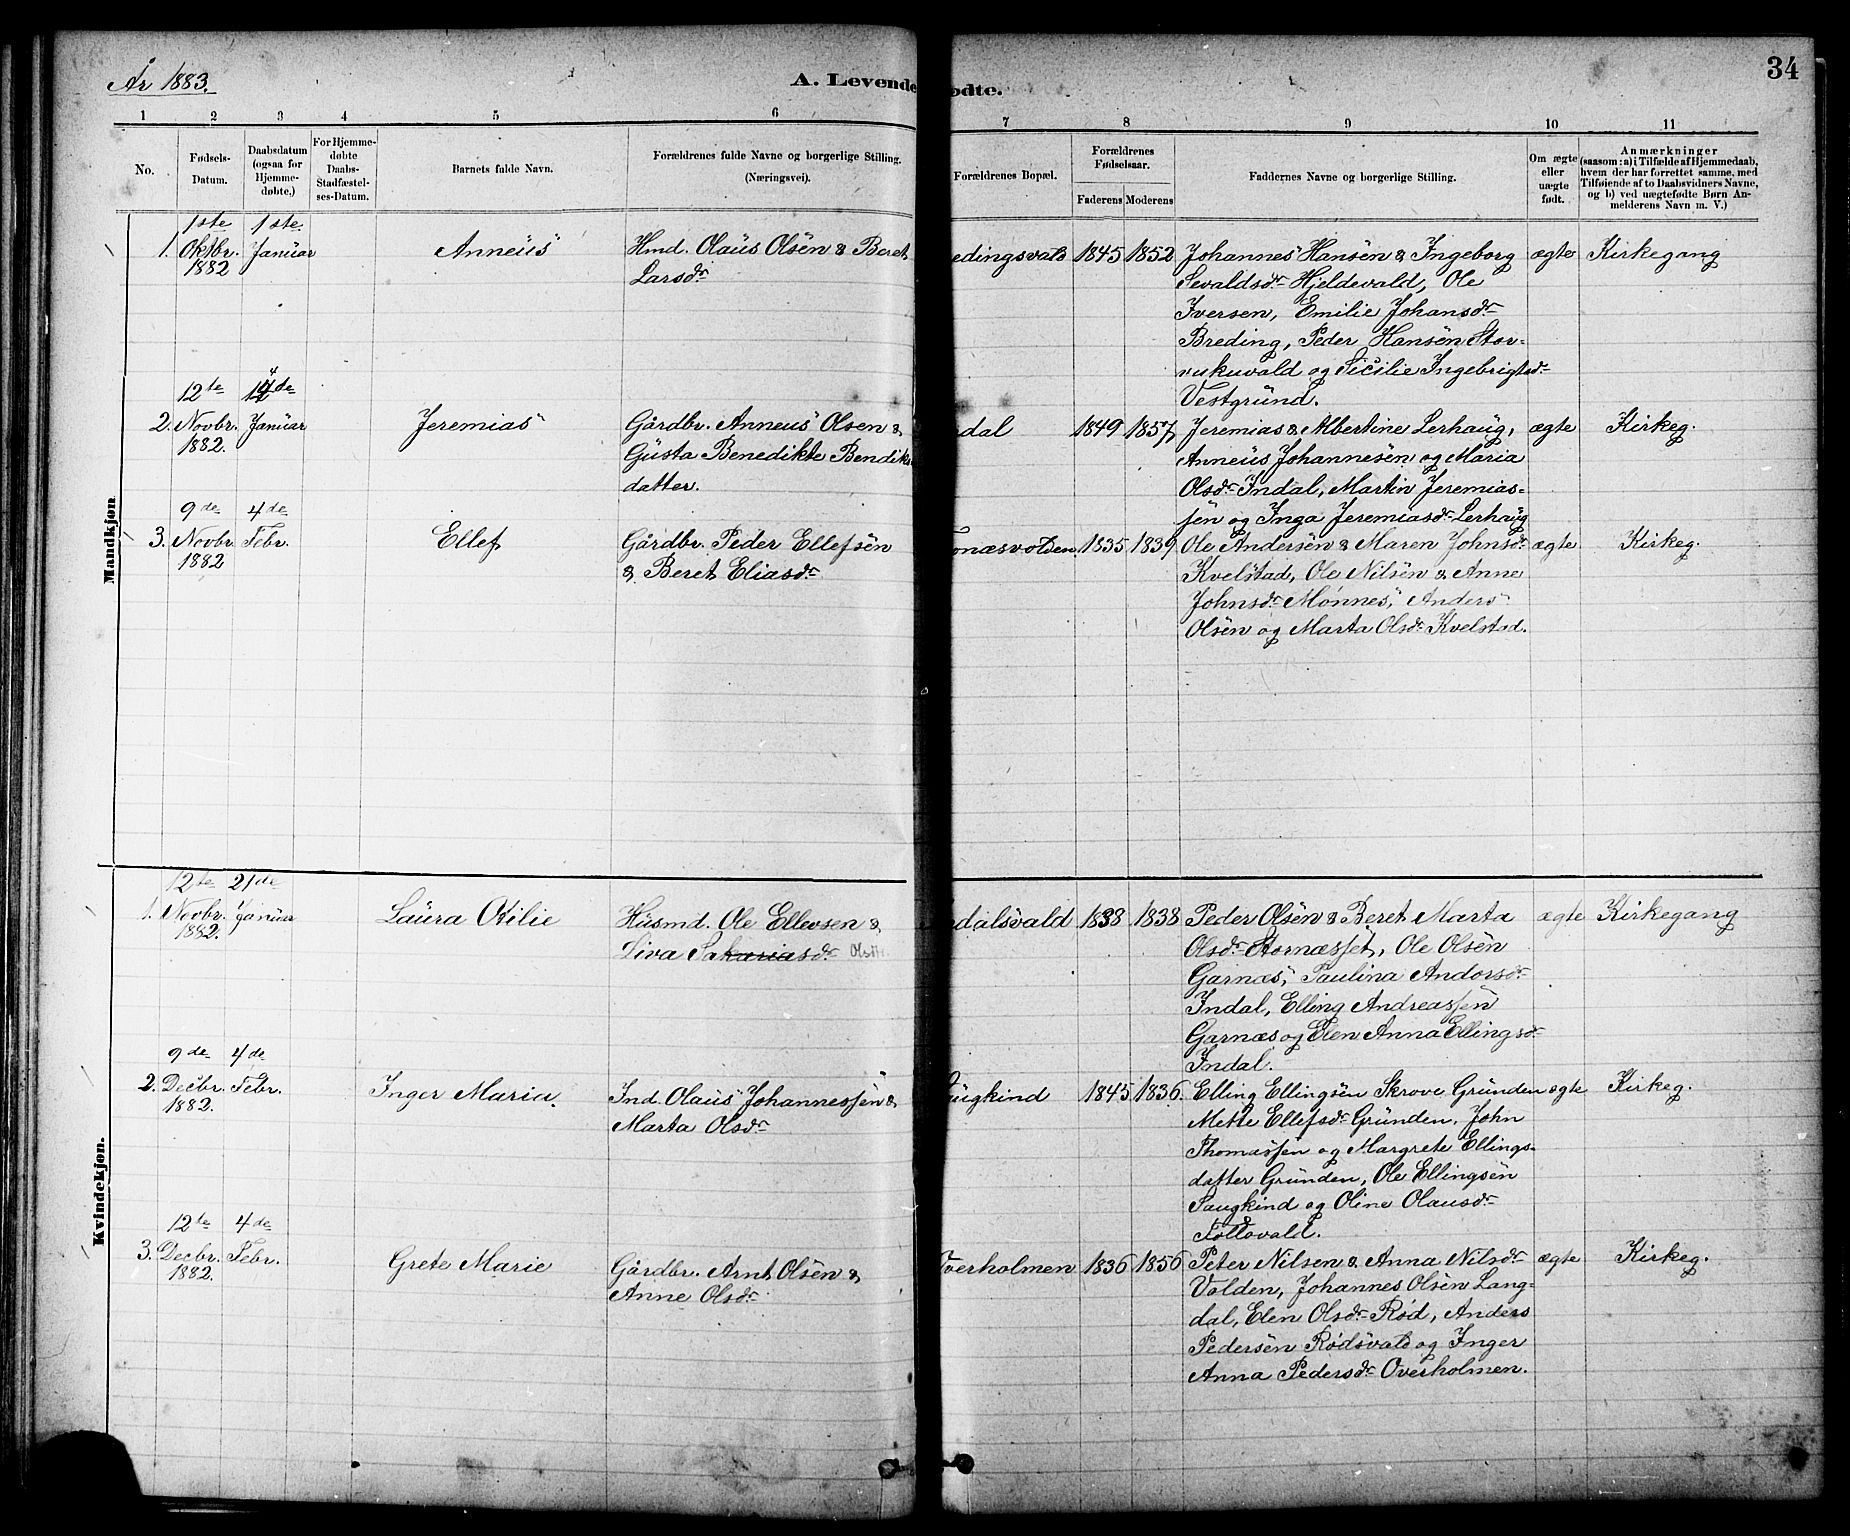 År 1883.
A. Levende
ødte.
34
1 2 3 4 5 6 7 8 9 10 11
No.
Fødsels-
Datum.
Daabsdatum
(ogsaa for
Hjemme-
døbte.)
For Hjemme-
døbte
Daabs-
Stadfæstel-
ses-Datum.
Barnets fulde Navn.
Forældrenes fulde Navne og borgerlige Stilling.
(Næringsvei).
Forældrenes Bopæl.
Forældrenes
Fødselsaar.
Faderens Moderens
Faddernes Navne og borgerlige Stilling.
Om ægte
eller
uægte
født.
Anmærkninger
(saasom: a) i Tilfælde af Hjemmedaab,
hvem der har forrettet samme, med
Tilføiende af to Daabsvidners Navne,
og b) ved uægtefødte Børn An-
melderens Navn m. V.)
Mandkjøn
1ste 1ste
1. Oktbr. Januar Anneus Hmd. Olaus Olsen & Beret edingsvald 1845 1852 Johannes Hansen & Ingeborg ægte Kirkegang
1882 Larsdr. Sevaldsdr. Hjeldevald, Ole
Iversen, Emilie Johansdr.
Breding, Peder Hansen Stor-
vukuvald og Sicilie Ingebrigtsdr.
Vestgrund.
12te 14de
2. Novbr. Januar Jeremias Gårdbr. Anneus Olsen & dal 1849 1857 Jeremias & Albertine Lerhaug, ægte Kirkeg.
1882. Gusta Benedikte Bendiks Anneus Johannesen og Maria
datter. Olsdr. Indal, Martin Jeremias-
sen og Inga Jeremiasdr. Lerhaug
9de 4de
3. Novbr. Febr. Ellef Gårdbr. Peder Ellefsen onæsvolden. 1835 1839 Ole Andersen & Maren Johnsdr. ægte Kirkeg.
1882 & Beret Eliasdr. Kvelstad, Ole Nilsen & Anne
Johnsdr. Mønnes, Anders
Olsen og Marta Olsdr. Kvelstad.
Kvindekjøn.
12te 21de
1. Novbr. Januar Laura Otilie Husmd. Ole Ellevsen & dalsvald 1838 1838 Peder Olsen & Beret Marta ægte Kirkegang
1882. Siva Sakariasdr. Olsdtr. Olsdr. Stornæsset, Ole Olsen
Garnæs, Paulina Andorsdr.
Indal, Elling Andreassen
Garnæs og Elen Anna Ellingsdr.
Indal.
9de 4de
2. Decbr. Febr. Inger Maria. Ind. Olaus Johannessen & augkind 1845 1836. Elling Ellingsen Skrove Grunden ægte Kirkeg.
1882. Marta Olsdr. Mette Ellefsdr. Grunden, John
Thomassen og Margrete Ellings-
datter Grunden, Ole Ellingsen
Saugkind og Oline Olausdr.
Tollovald.
12te 4de
3. Decbr. Febr. Grete Marie Gårdbr. Arnt Olsen & verholmen 1836 1856 Peter Nilsen & Anna Nilsdr. ægte Kirkeg.
1882. Anne Olsdr. Volden, Johannes Olsen Lang-
dal, Elen Olsdr. Rød, Anders
Pedersen Rødsvald og Inger
Anna Pedersdr. Overholmen.